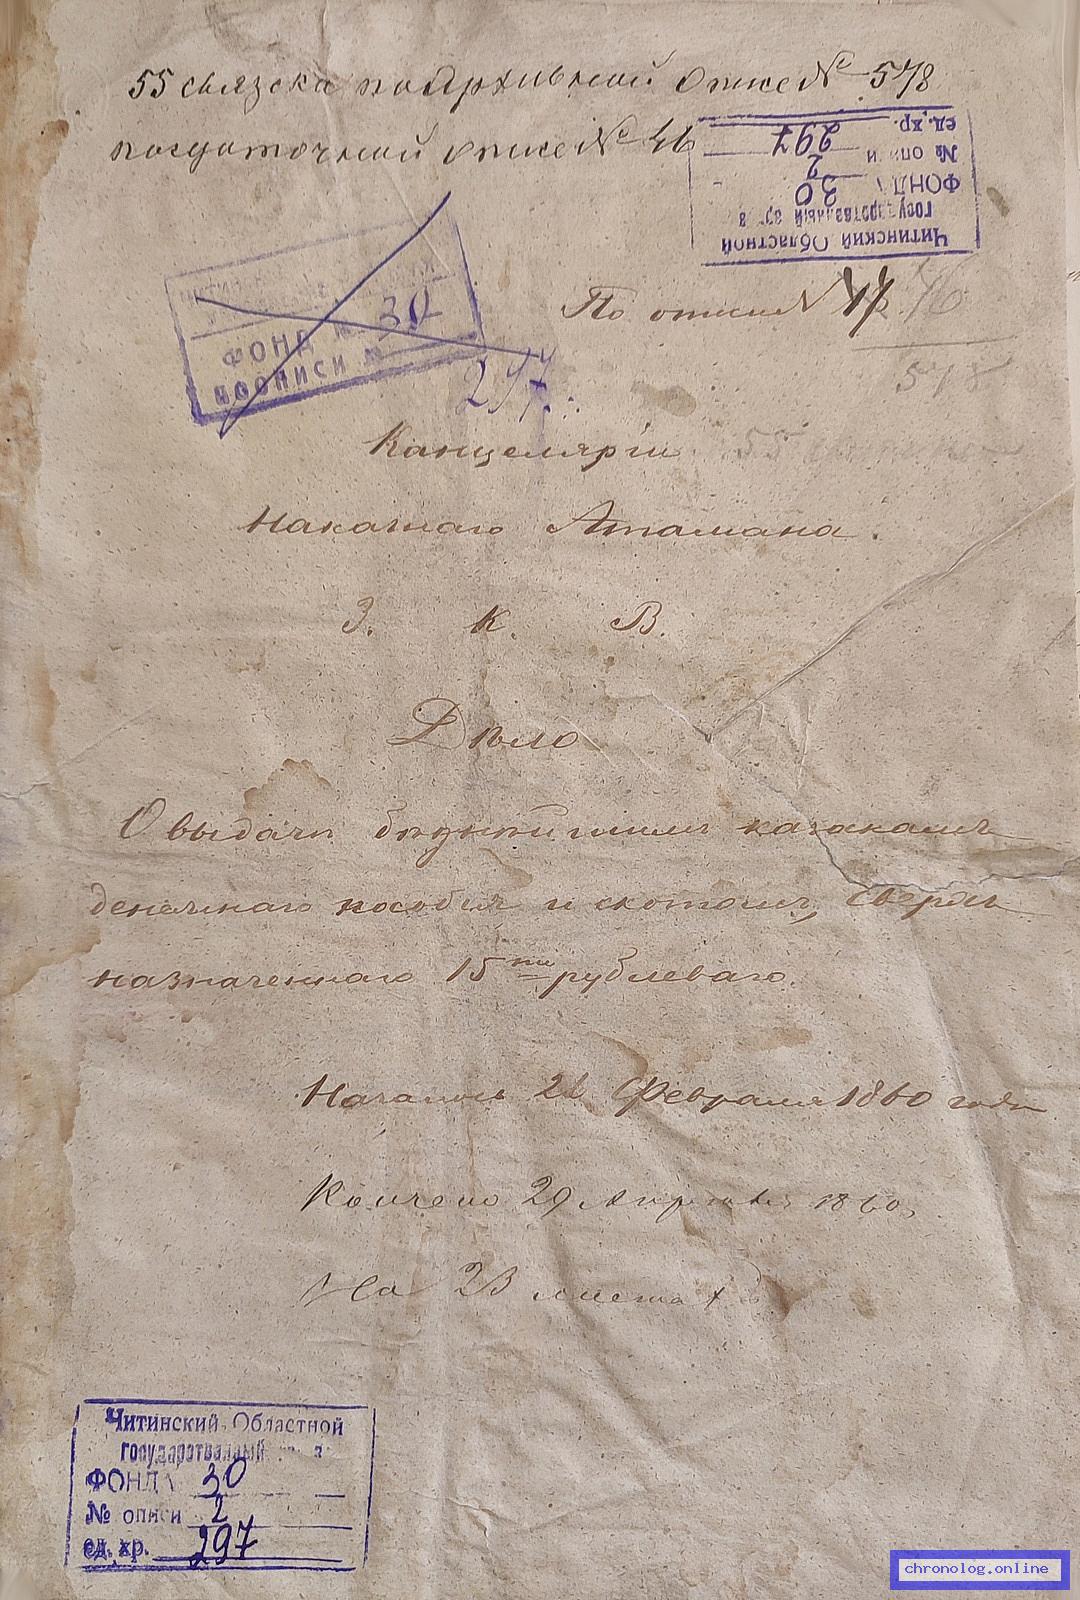 55 связка по архивной описе № 578
по суточной описе № 46
Читинский Областной
государственный
ФОНД 30
№ описи 2
ед. хр. 297
ФОНД № 30
№ описи №
297
По описи № 17
76
578
55
Канцелярiи
Наказнаго Атамана.
З. К. В.
Дѣло
О выдачи бѣднѣйшимъ казакамъ
денежнаго пособия и скотомъ, сверхъ
назначеннаго 15ти рублеваго.
Началось 21 Февраля 1860 года
Кончено 29 Апреля 1860
На 23 листах
Читинский Областной
государственный
ФОНД 30
№ описи 2
ед. хр. 297
chronolog.online